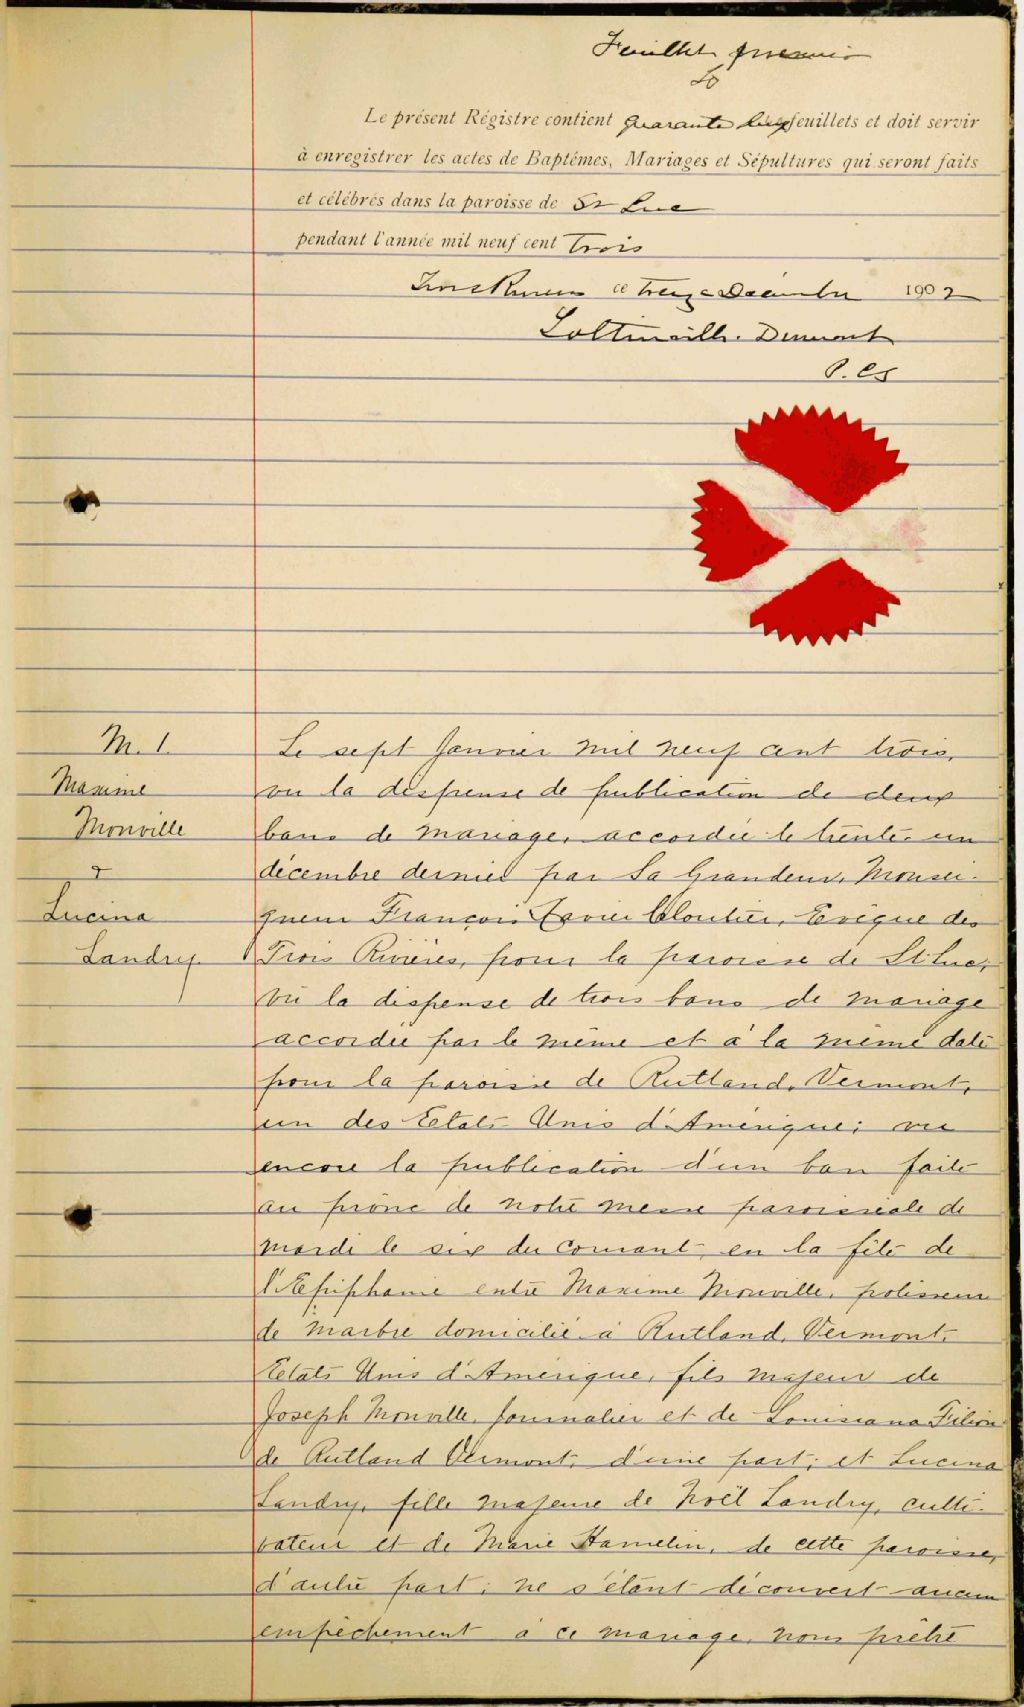 Feuillet premier
Le présent Régistre contient quarante feuillets et doit servir
à enregistrer les actes de Baptêmes, Mariages et Sépultures qui seront faits
et célébrés dans la paroisse de St Luc
pendant l'année mil neuf cent trois
Trois Rivières ce treize Décembre 1902
Dumont
P. C S
M. 1.
Maxime
Monville
&
Lucina
Landry.
Le sept Janvier mil neuf cent trois,
vu la dispense de publication de deux
bans de mariage, accordée le trente-un
décembre dernier par Sa Grandeur, Monsei-
gneur François Xavier Cloutier, Evêque des
Trois Rivières, pour la paroisse de St Luc,
vu la dispense de trois bans de mariage
accordée par le même et à la même date
pour la paroisse de Rutland, Vermont,
un des Etats-Unis d'Amérique; vu
encore la publication d'un ban faite
au prône de notre messe paroissiale de
mardi le six du courant, en la fête de
l'Epiphanie entre Maxime Monville, polisseur
de marbre domicilié à Rutland, Vermont,
Etats Unis d'Amérique, fils majeur de
Joseph Monville, Journalier et de Louisiana Filion
de Rutland Vermont, d'une part; et Lucina
Landry, fille majeure de Noël Landry, culti-
vateur et de Marie Hamelin, de cette paroisse,
d'autre part; ne s'étant découvert aucun
empêchement à ce mariage, nous prêtre